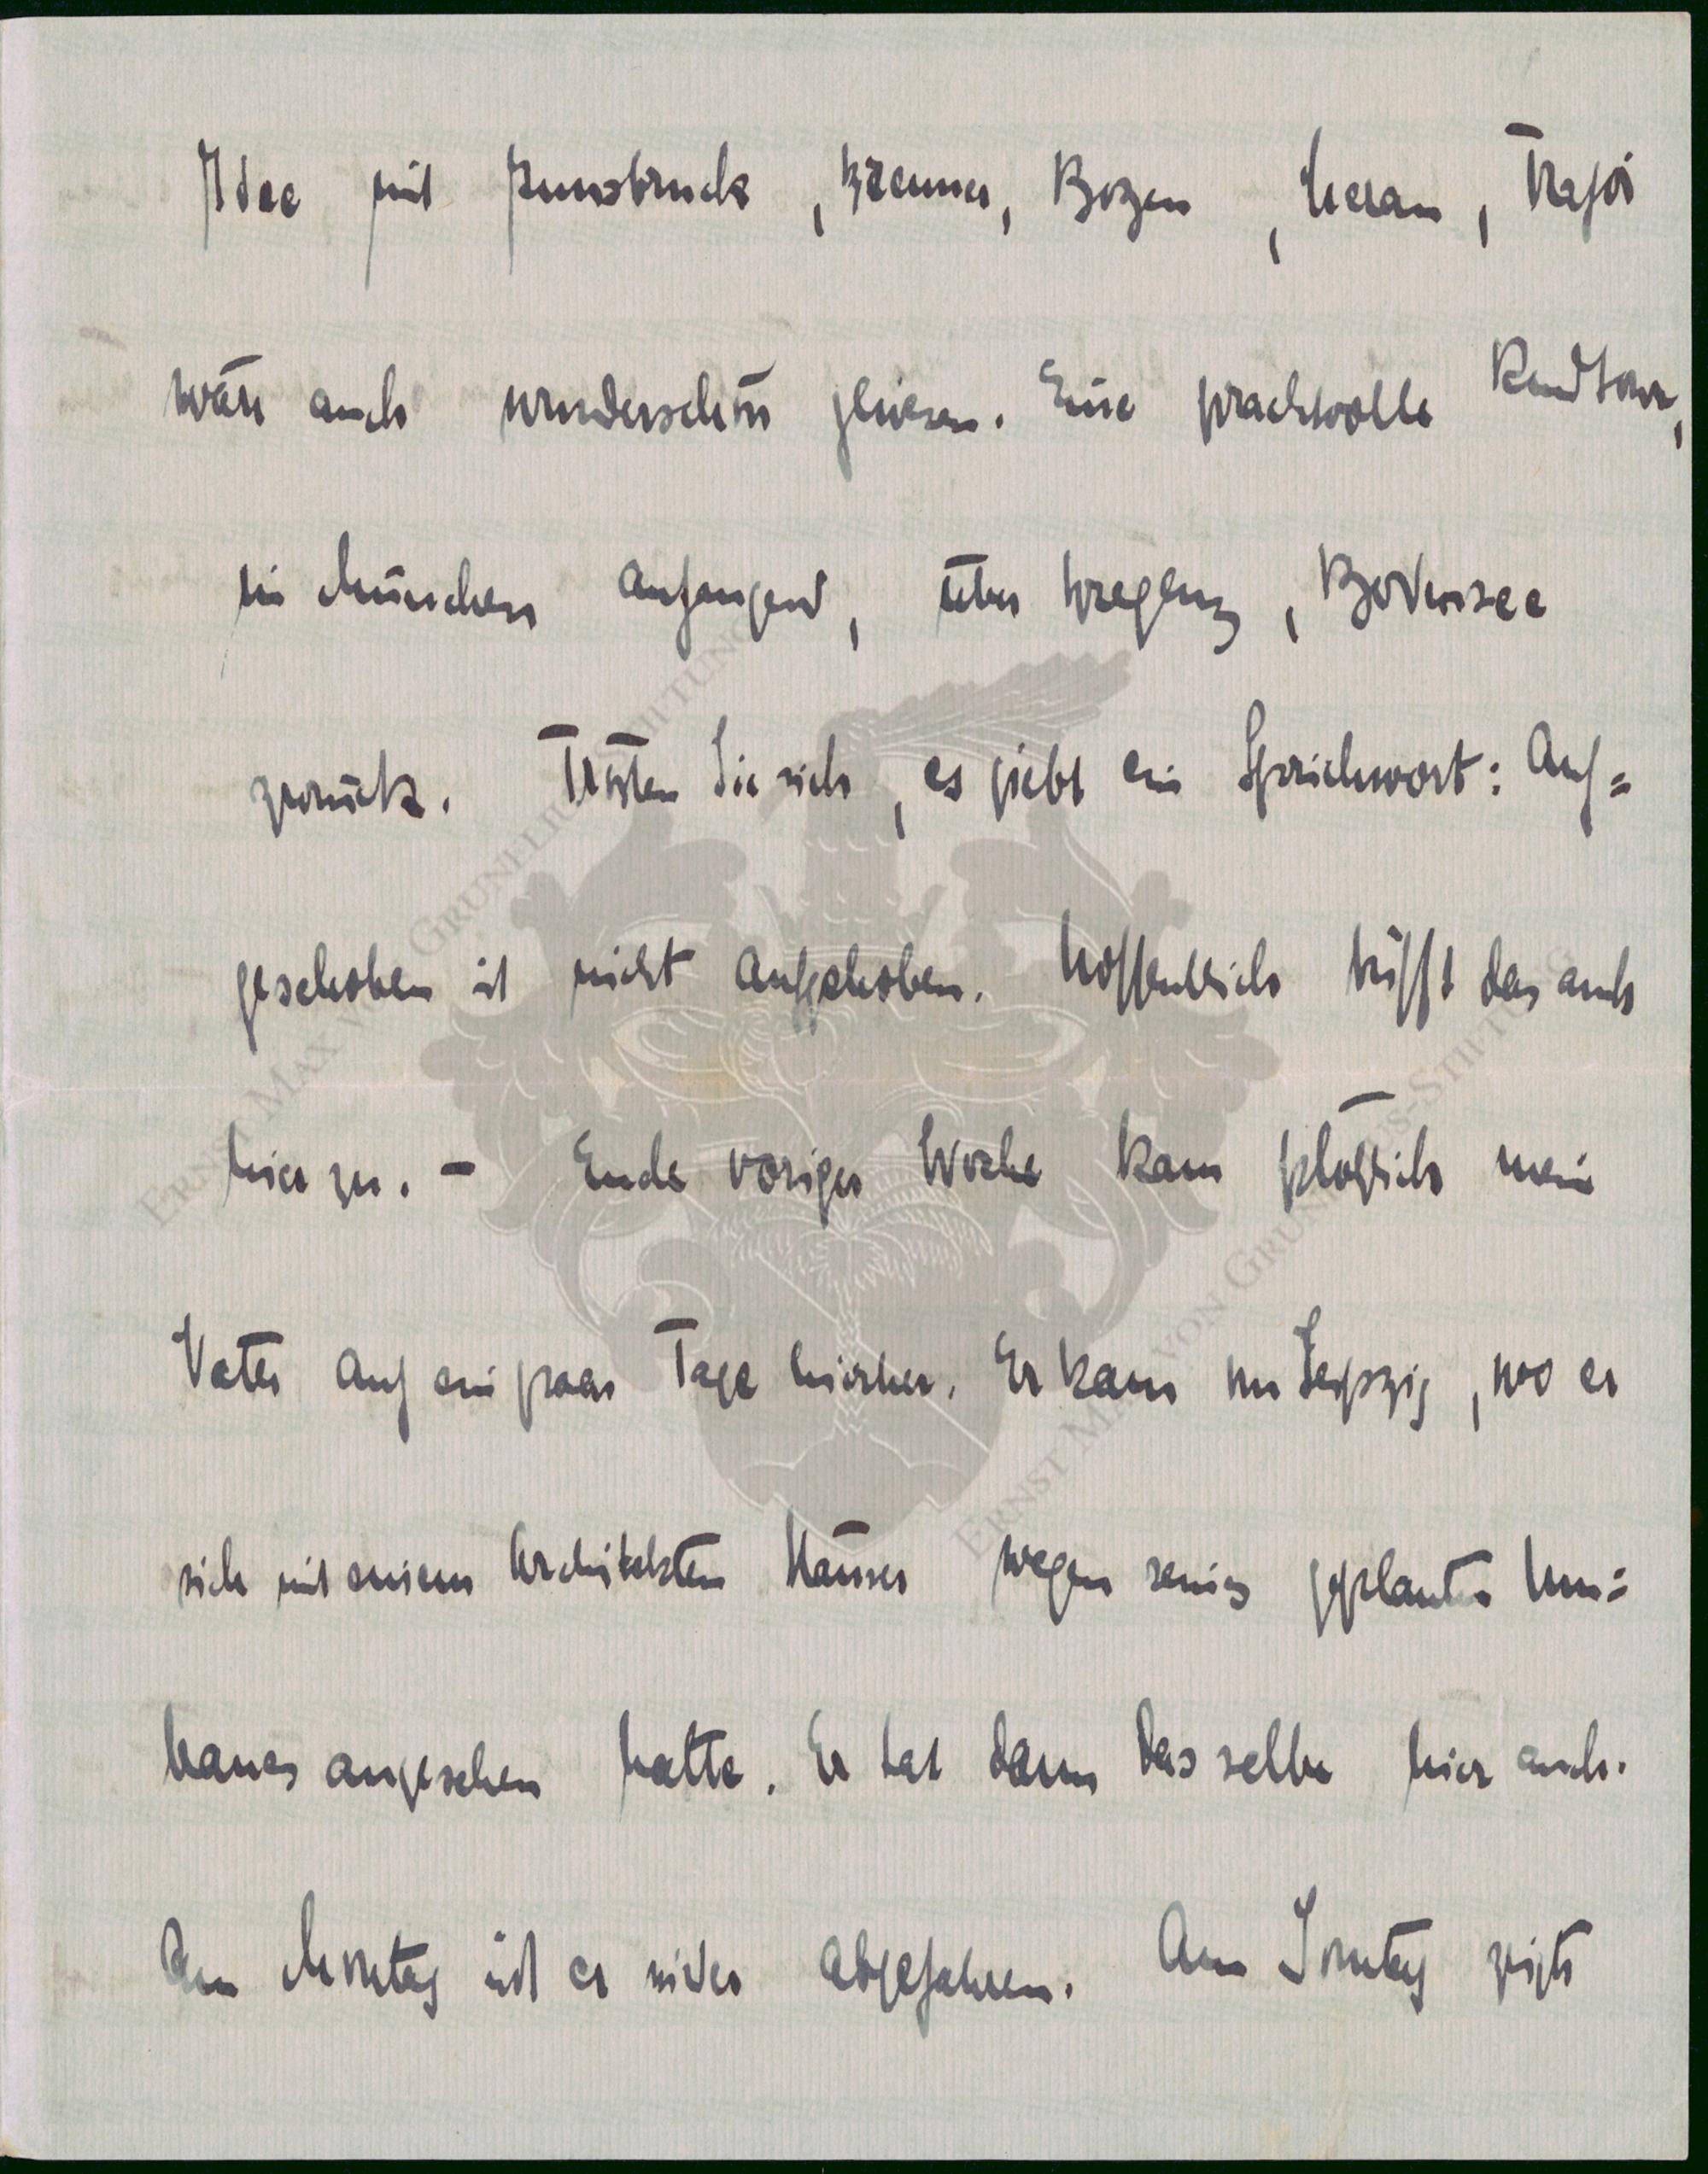 Idee mit Innsbruck, Brenner, Bozen, Meran, Trafoi
wäre auch wunderschön gewesen. Eine prachtvolle Rundtour,
in München anfangend, über Bregenz, Bodensee
zurück. Trösten Sie sich, es giebt ein Sprichwort: Auf=
geschoben ist nicht aufgehoben. Hoffentlich trifft das auch
hier zu. – Ende voriger Woche kam plötzlich mein
Vater auf ein paar Tage hierher. Er kam von Leipzig, wo er
sich mit einem Architekten Häuser wegen seines geplanten Um=
baues angesehen hatte. Er tat dann dasselbe hier auch.
Am Montag ist er wieder abgefahren. Am Sonntag zeigte
ERNST MAX VON GRUNELIUS-STIFTUNG
ERNST MAX VON GRUNELIUS-STIFTUNG